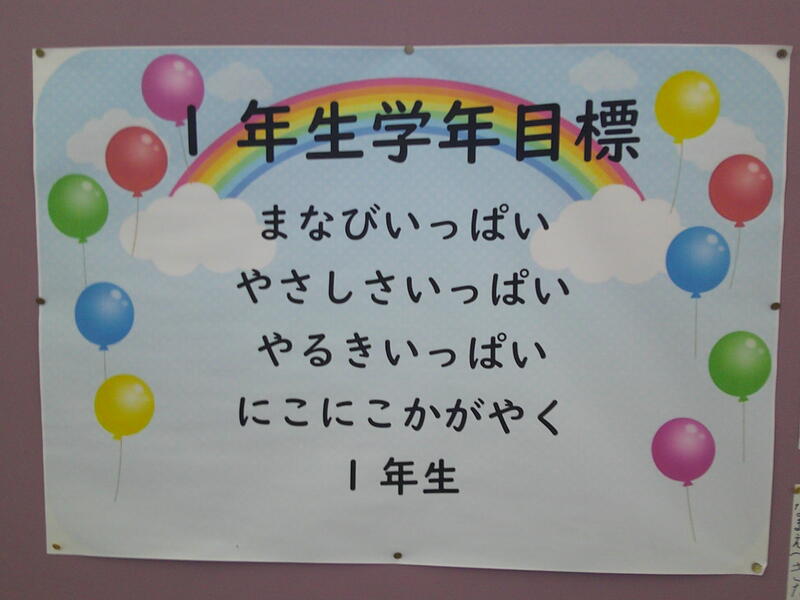 1年生学年目標
まなびいっぱい
やさしさいっぱい
やるきいっぱい
にこにこかがやく
1年生